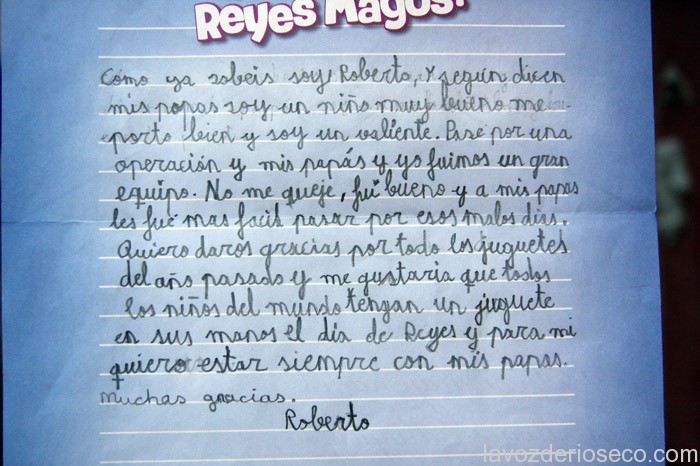 Reyes Magos!
Como ya sabeis soy Roberto, y según dicen
mis papas soy un niño muy bueno me
porto bien y soy un valiente. Pase por una
operación y mis papás y yo fuimos un gran
equipo. No me queje, fui bueno y a mis papas
les fue mas facil pasar por esos malos dias.
Quiero daros gracias por todo los juguetes
del año pasado y me gustaria que todos
los niños del mundo tengan un juguete
en sus manos el dia de Reyes y para mi
quiero estar siempre con mis papas.
Muchas gracias.
Roberto
lavozderioseco.com